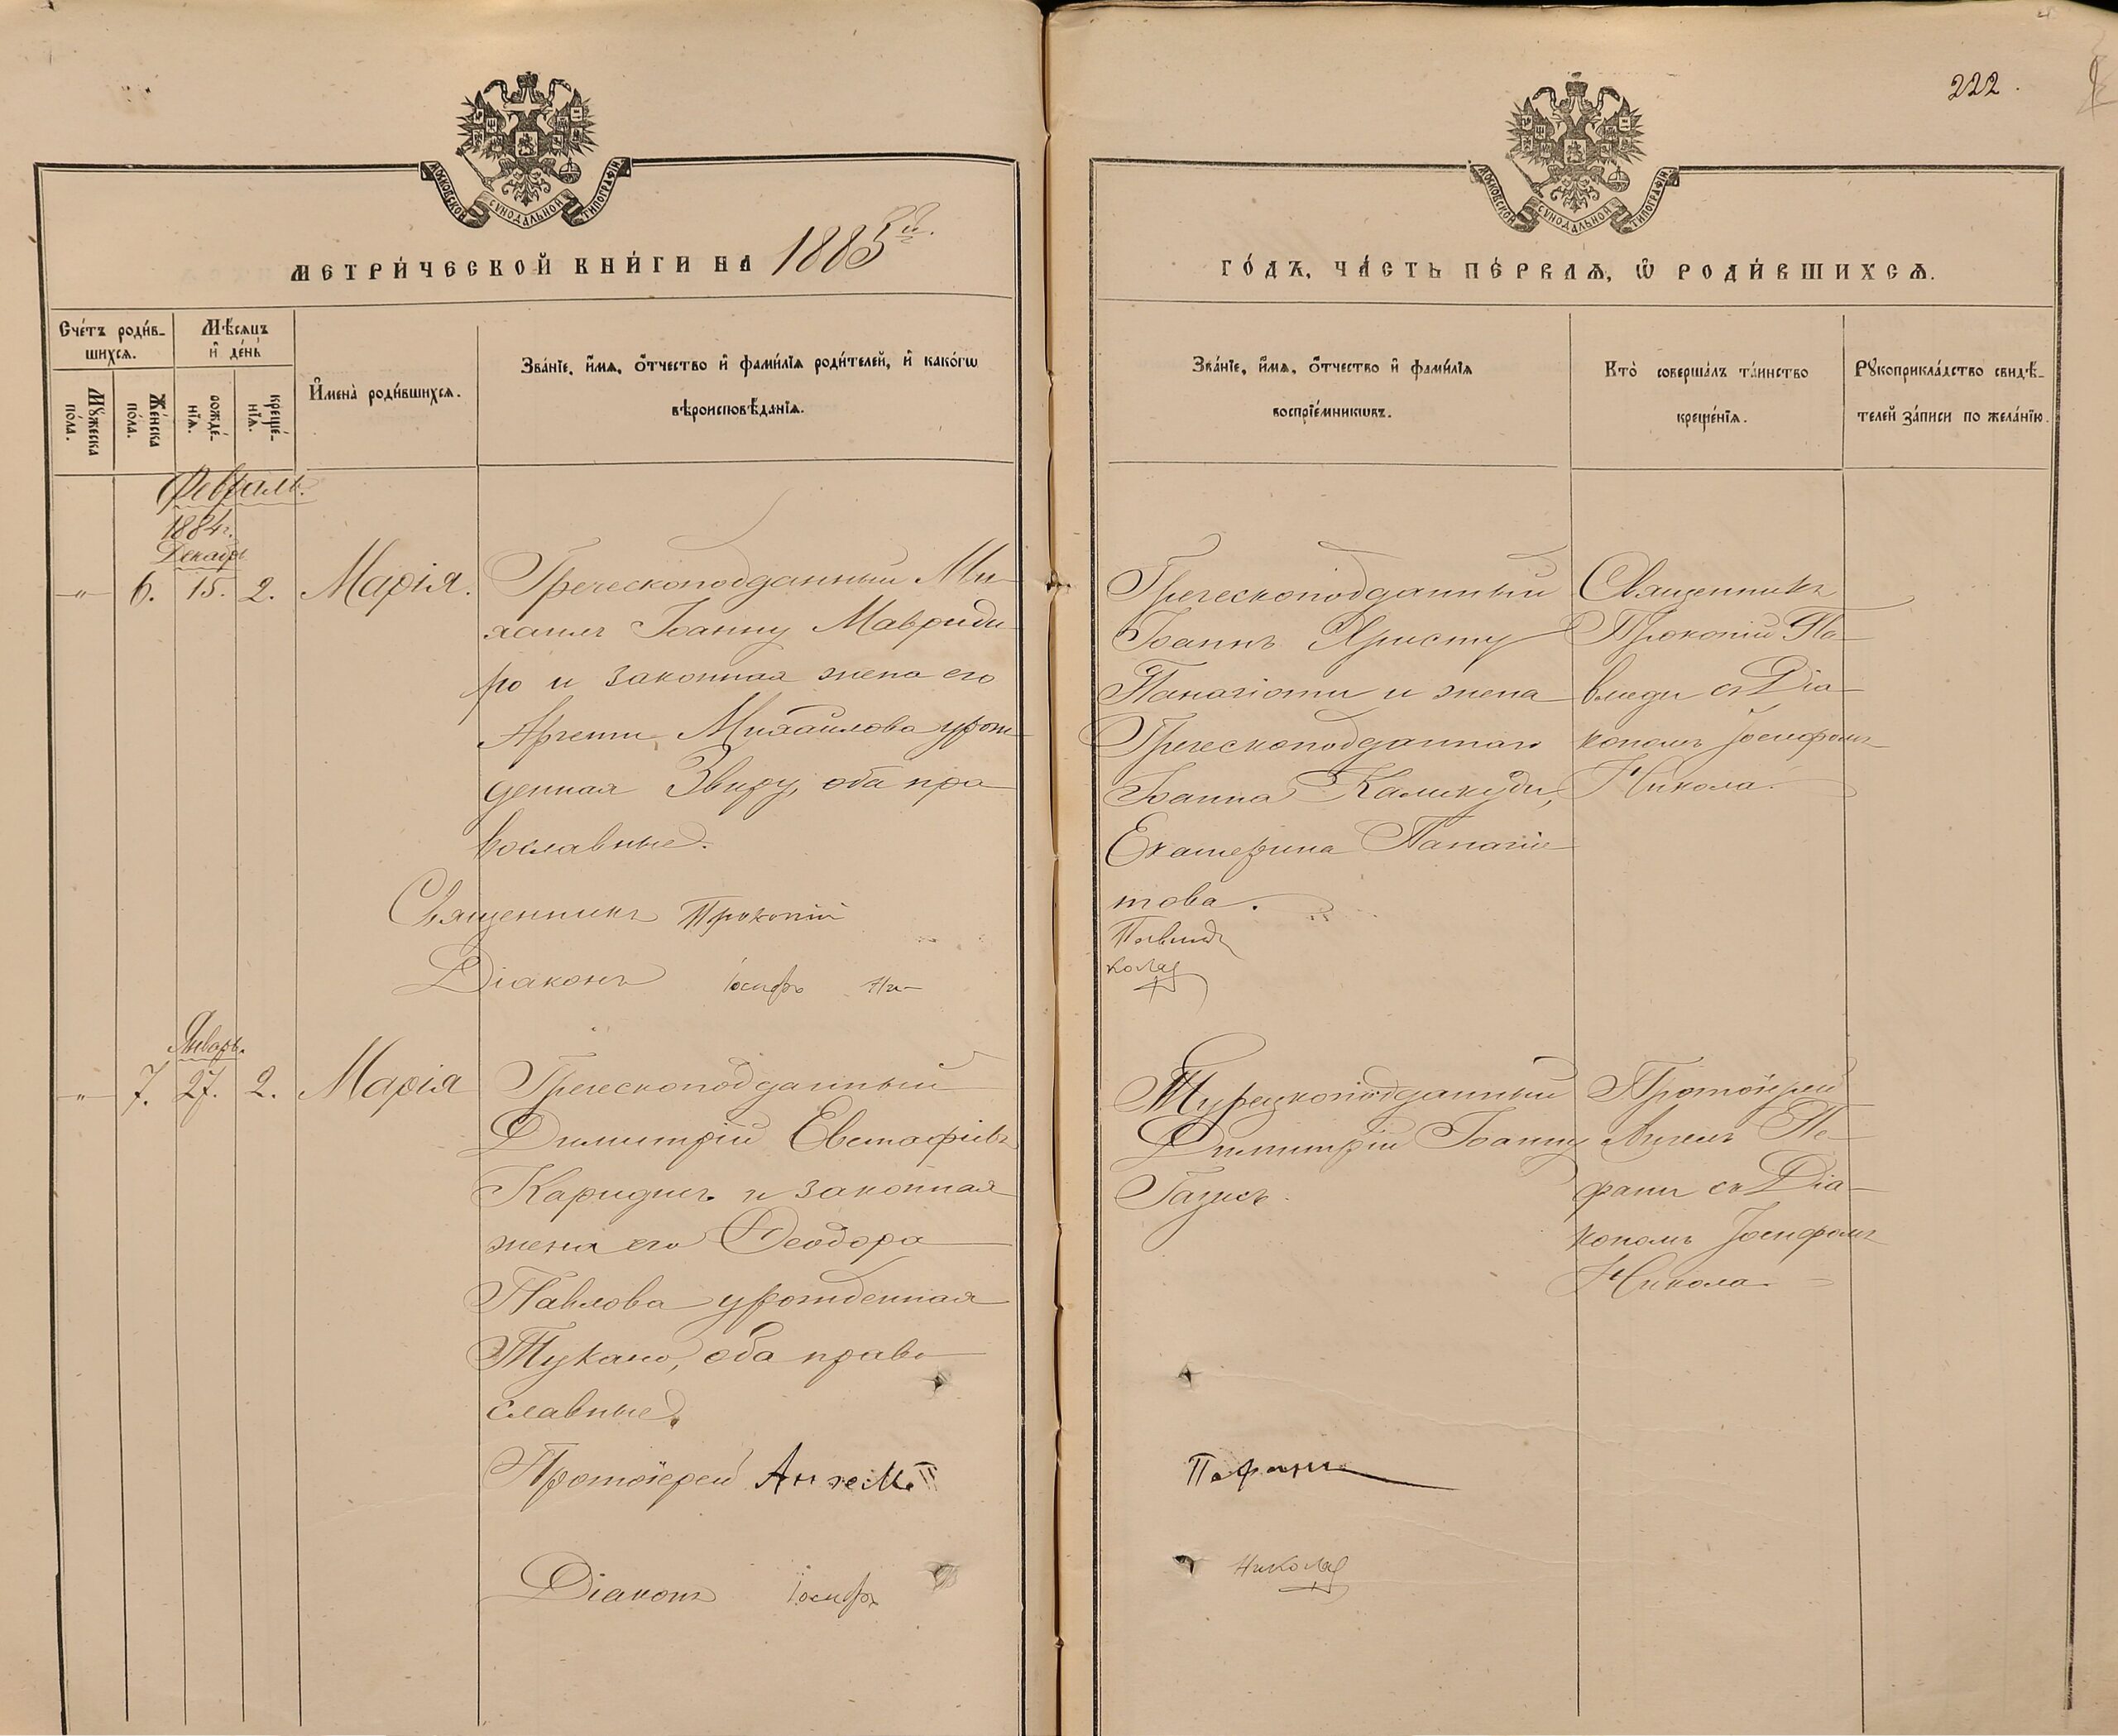 222.
МОСКОВСКОЙ СУНОДАЛЬНОЙ ТИПОГРАФІИ
МОСКОВСКОЙ СУНОДАЛЬНОЙ ТИПОГРАФІИ
МЕТРИ́ЧЕСКОЙ КНИ́ГИ НА 1885й.
ГО́ДЪ, ЧА́СТЬ ПЕ́РВАѦ, Ѿ РОДИ́ВШИХСѦ.
Сче́тъ роди́в-
шихсѧ.
Мѣ́сѧцъ
и҆ де́нь
Мꙋжеска
по́ла.
Же́нска
по́ла.
рожде́-
нїѧ.
креще́-
нїѧ.
И҆мена̀ роди́вшихсѧ.
Зва́нїе, и҆́мѧ, ѻ҆́тчество и҆ фами́лїѧ роди́телей, и҆ како́гѡ
вѣроисповѣ́данїѧ.
Зва́нїе, и҆́мѧ, ѻ҆́тчество и҆ фами́лїѧ
воспрїе́мникѡвъ.
Кто̀ соверша́лъ та́инство
креще́нїѧ.
Рꙋкоприкла́дство свидѣ́-
телей за́писи по жела́нїю.
Февраль.
1884г.
Декабрь
-"- 6. 15. 2. Марія.
Греческоподданный Ми-
хаилъ Іоанну Мавриди-
ро и законная жена его
Аргети Михаилова урож-
денная Звиру, оба пра-
вославные.
Священникъ Прокопій
Діаконъ Іосифъ Ни-
Греческоподданный
Іоаннъ Христу
Панагіоти и жена
Греческоподданнаго
Іоанна Каликуди,
Екатерина Панагіо-
това.
Павлиди
колау
Священникъ
Прокопій Па-
влиди съ Діа-
кономъ Іосифомъ
Никола.
Январь.
-"- 7. 27. 2. Марія
Греческоподданный
Димитрій Евстафіевъ
Каридисъ и законная
жена его Ѳеодора
Павлова урожденная
Тукано, оба право-
славные.
Протоіерей Ангелъ П
Діаконъ Іосифъ
Турецкоподданный
Димитрій Іоанну
Газисъ.
Перани
Николау
Протоіерей
Ангелъ Пе-
рани съ Діа-
кономъ Іосифомъ
Никола.